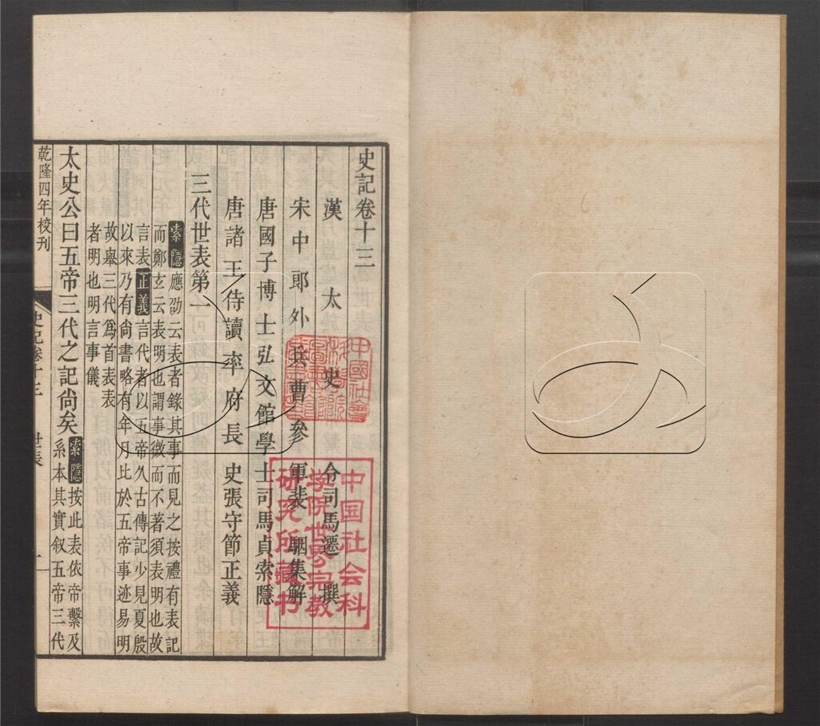 史記卷十三
漢太史令司馬遷撰
宋中郎外兵曹參軍裴駰集解
唐國子博士弘文館學士司馬貞索隱
唐諸王侍讀率府長史張守節正義
三代世表第一
索隱應劭云表者錄其事而見之按禮有表記
而鄭玄云表明也謂事微而不著須表明也故
言表正義言代者以五帝久古傳記少見夏殷
以來乃有尚書略有年月比於五帝事迹易明
故舉三代爲首表表
者明也明言事儀
太史公曰五帝三代之記尚矣
索隱按此表依帝繫及
系本其實叙五帝三代
乾隆四年校刊
史記卷十三 世表 一
中国社会科
学院世界宗教
研究所藏书
中國社會